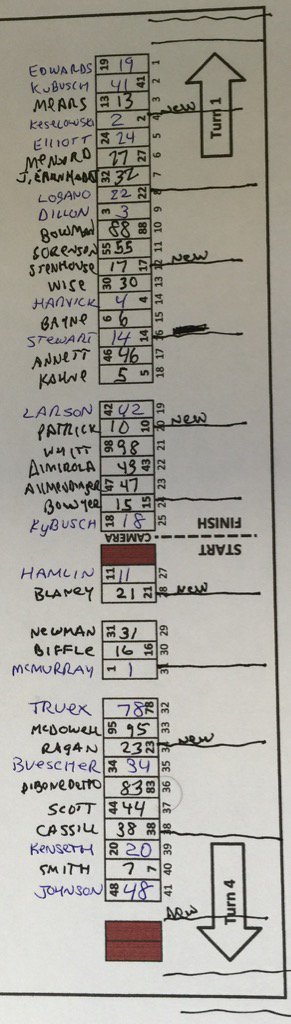 EDWARDS 19 19 1
KuBUSCH 41 41 2
MEARS 13 13 3 new
KESELOWSKI 2 2 4
Turn 1
ELLIOTT 24 24 5
MENARD 27 27 6
32 32 7
LOGANO 22 22 8
DILLON 3 3 9
BOWMAN 88 88 10
SORENSON 55 55 11
STENHOUSE 17 17 12 new
WISE 30 30 13
HARVICK 4 4 14
BAYNE 6 6 15
STEWART 14 14 16
ANNETT 46 46 17
KAHNE 5 5 18
LARSON 42 42 19
PATRICK 10 10 20 new
WHITT 98 98 21
43 43 22
47 47 23
BOWYER 15 15 24
KyBUSCH 18 18 25
FINISH
CAMERA
START
HAMLIN 11 11 27
BLANEY 21 21 28 new
NEWMAN 31 31 29
BIFFLE 16 16 30
MCMURRAY 1 1 31
TRUEX 78 78 32
MCDOWELL 95 95 33
RAGAN 23 23 34 new
BUESCHER 34 34 35
83 83 36
SCOTT 44 44 37
CASSILL 38 38 38
KENSETH 20 20 39
SMITH 7 7 40
JOHNSON 48 48 41
new
Turn 4